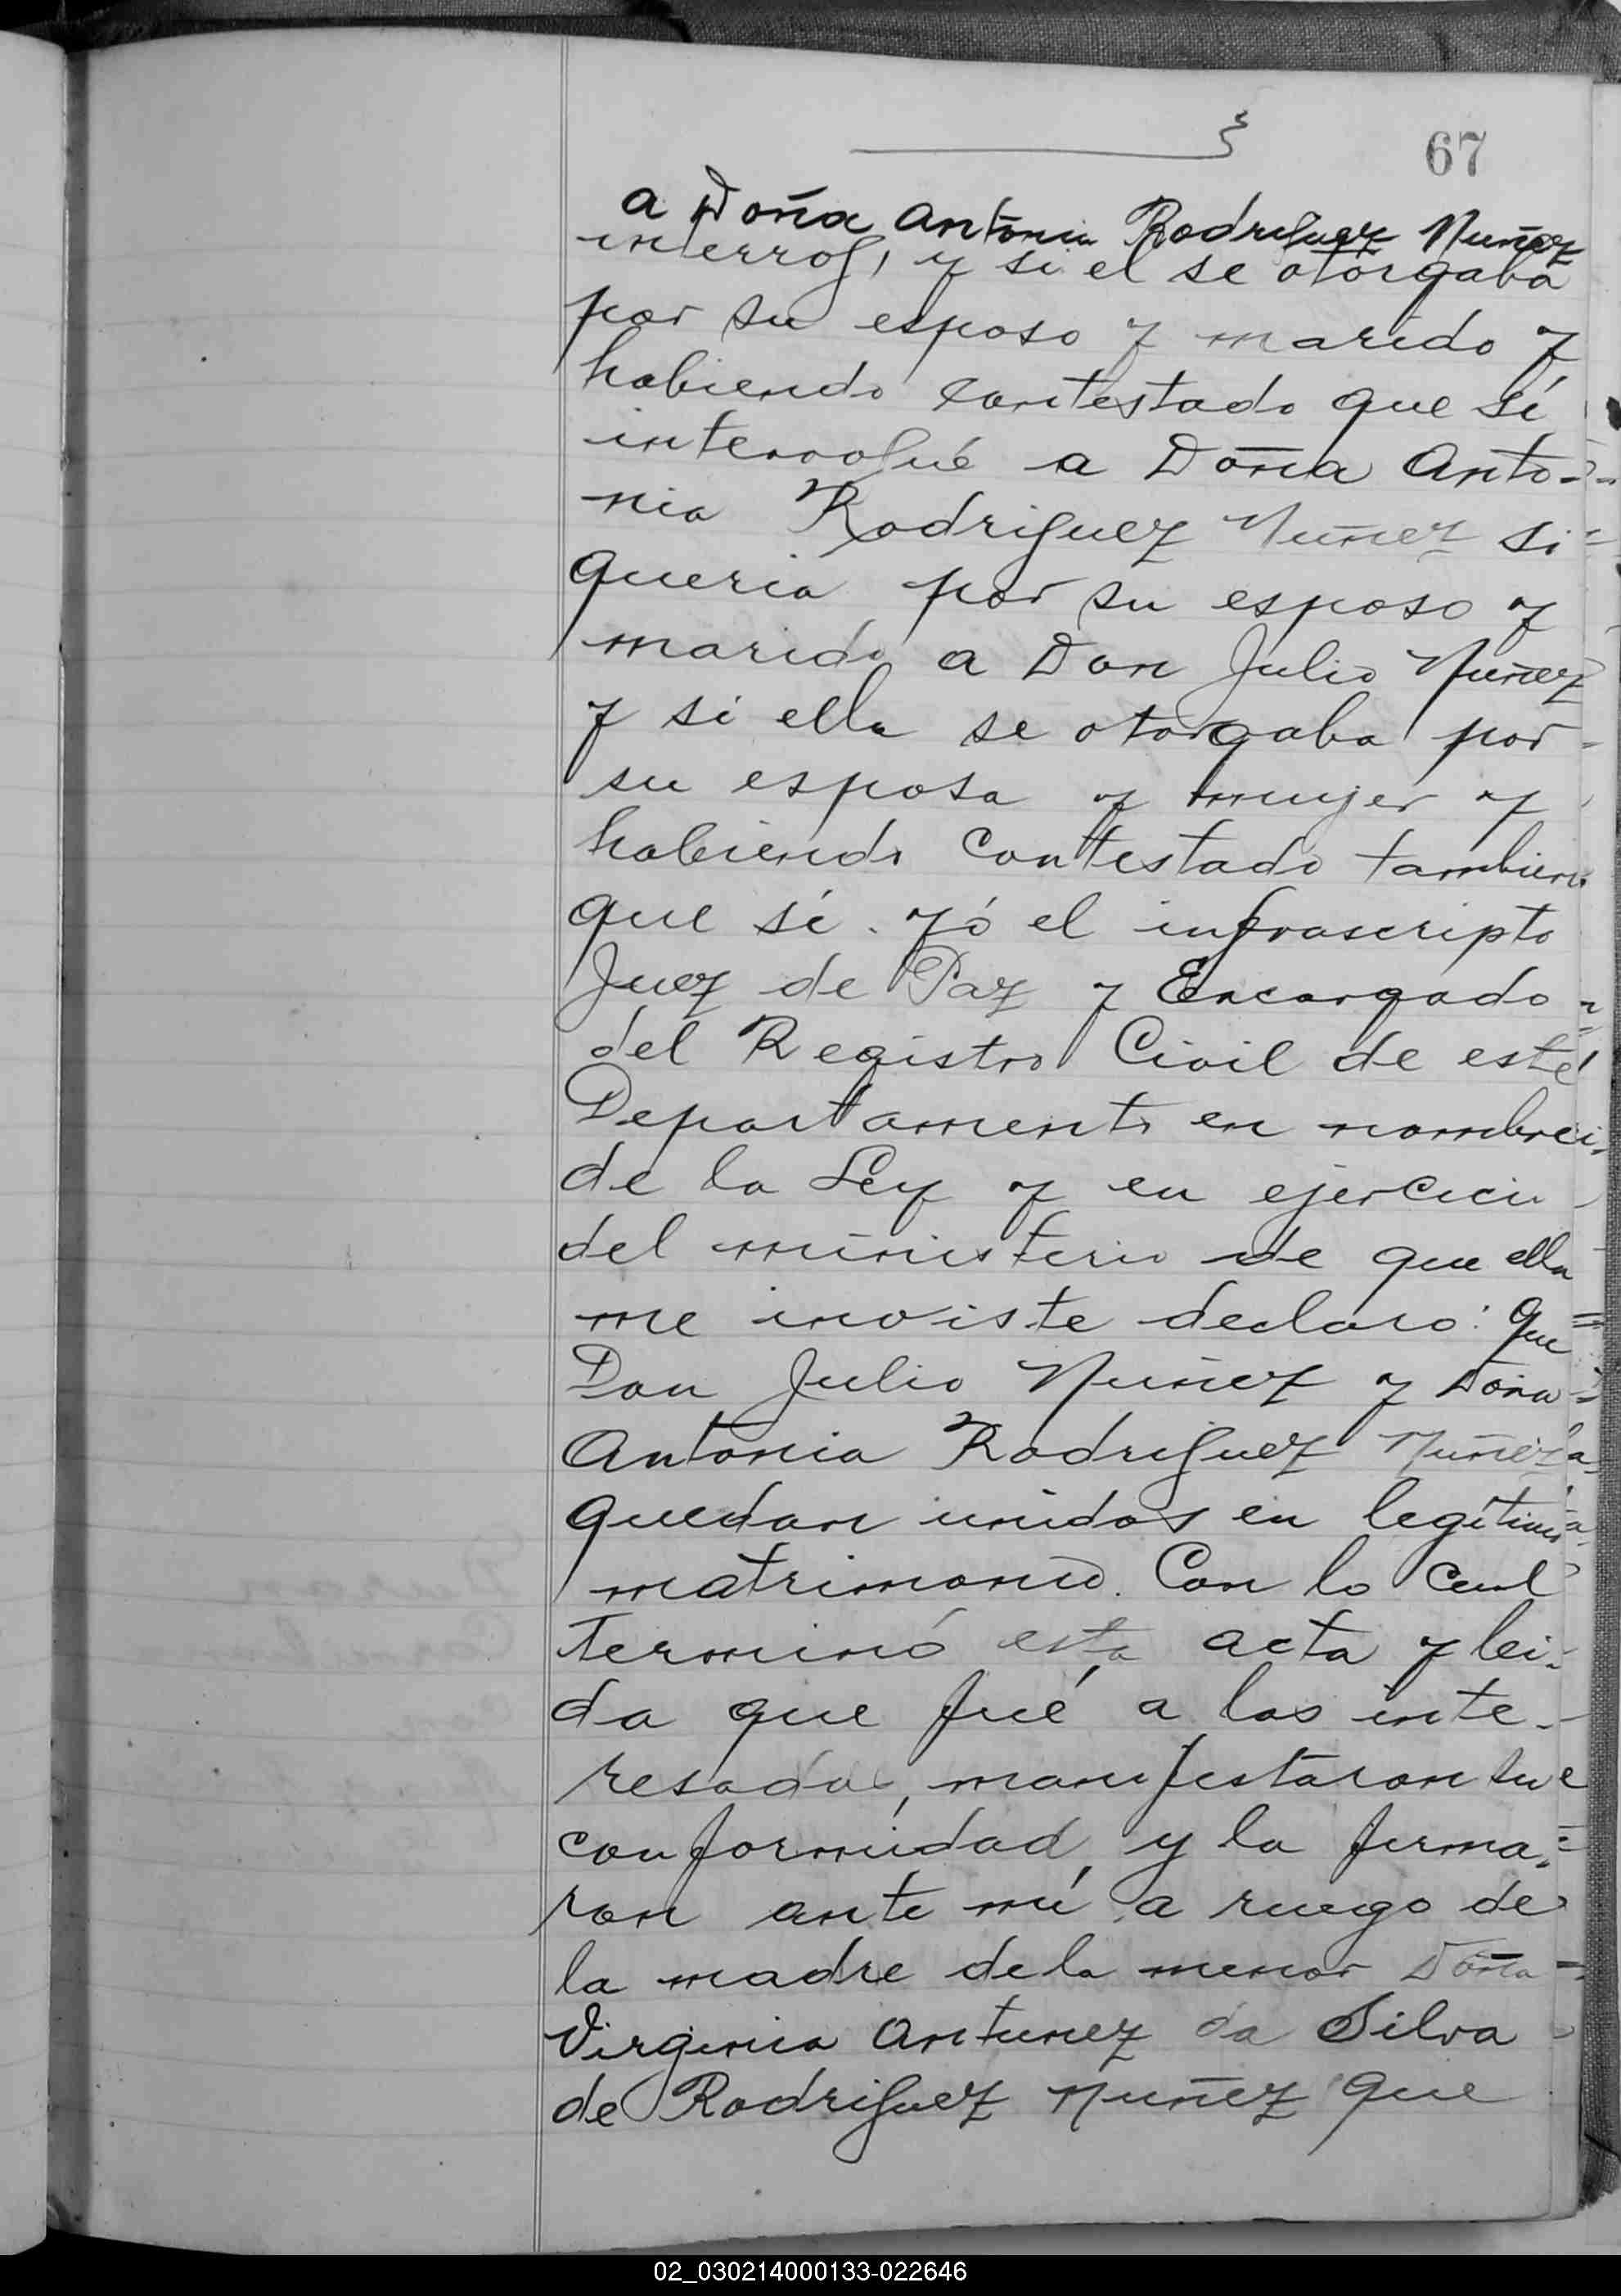 67
a Doña Antonia Rodriguez Nuñez
y si el se otorgaba
por su esposo y marido y
habiendo contestado que sí
interrogué a Doña Anto-
nia Rodriguez Nuñez si
queria por su esposo y
marido a Don Julio Nuñez
y si ella se otorgaba por
su esposa y mujer y
habiendo contestado tambien
que sí. yó el infrascripto
Juez de Paz y Encargado
del Registro Civil de este
Departamento en nombre
de la Ley y en ejercicio
del ministerio de que ella
me inviste declaro: que
Don Julio Nuñez y Doña
Antonia Rodriguez Nuñez
quedan unidos en legítimo
matrimonio. Con lo cual
terminó esta acta y lei-
da que fué a los inte-
resados, manifestaron su
conformidad, y la firma-
ron ante mí a ruego de
la madre de la menor Doña
Virginia Antunez da Silva
de Rodriguez Nuñez que
02_030214000133-022646